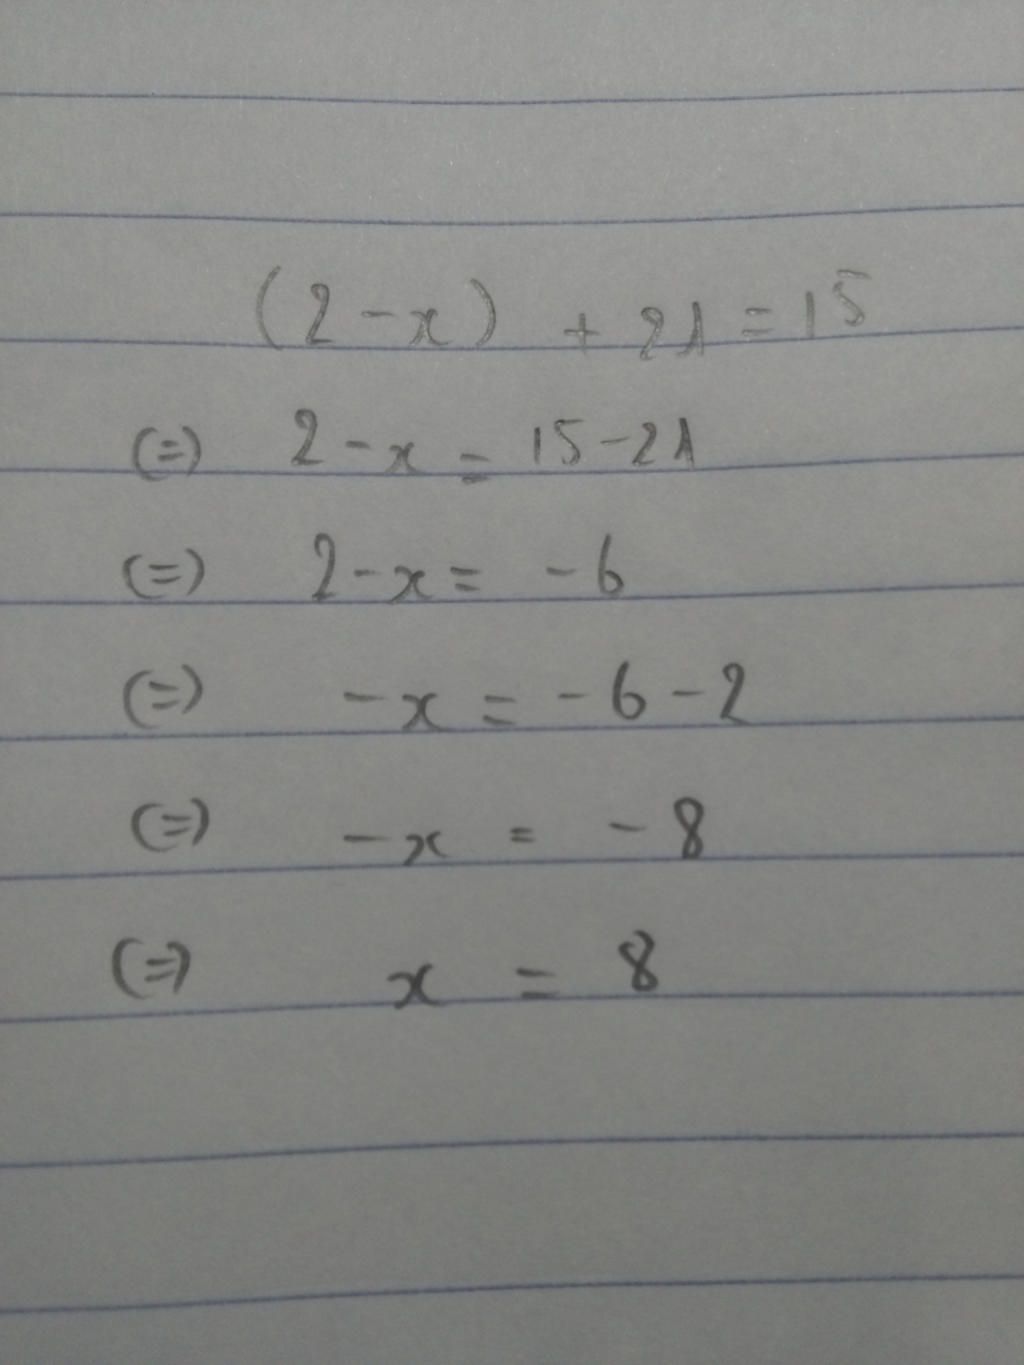 (2-x) + 21 = 15
(=) 2-x = 15-21
(=) 2-x = -6
(=) -x = -6-2
(=) -x = -8
(=) x = 8